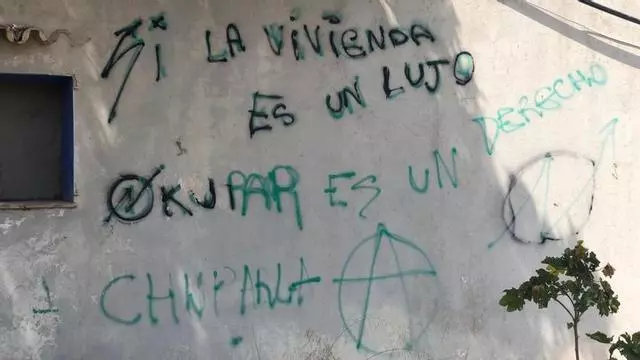 Si LA ViViENDA
ES UN LUJO
OKUPAR ES UN DERECHO